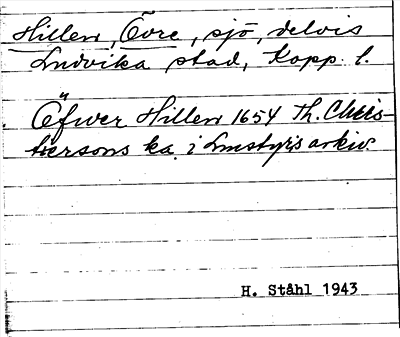 Hillen, Övre, sjö, delvis
Ludvika stad, Kopp. l.
Öfwer Hillen 1654 Th. Chris-
tiersons ka. i Lmstyr:s arkiv.
H. Ståhl 1943